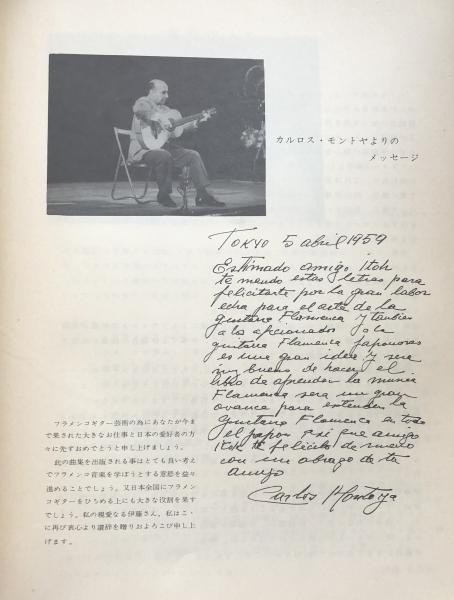 カルロス・モントヤよりの
メッセージ
TOKYO 5 abril 1959
Estimado amigo Itoh
te mando estas letras para
felicitarte por la gran labor
echa para el arte de la
guitarra Flamenca y tanbien
a los aficionados a la
guitarra Flamenca Japonesas
es una gran idea y sera
muy bueno de hacer el
libro de aprender la musica
Flamenca sera un gran
avance para estender la
guitarra Flamenca en todo
el Japon Asi que amigo
Itoh te felicito de nuevo
con un abrazo de tu
amigo
Carlos Montoya
フラメンコギター芸術の為にあなたが今ま
で果された大きなお仕事と日本の愛好者の方
々に先ずおめでとうと申し上げましょう。
此の曲集を出版される事はとても良い考え
でフラメンコ音楽を学ぼうとする意慾を益々
進めることでしょう。又日本全国にフラメン
コギターをひろめる上にも大きな役割を果す
でしょう。私の親愛なる伊藤さん、私はこゝ
に再び衷心より讃辞を贈りおよろこび申し上
げます。